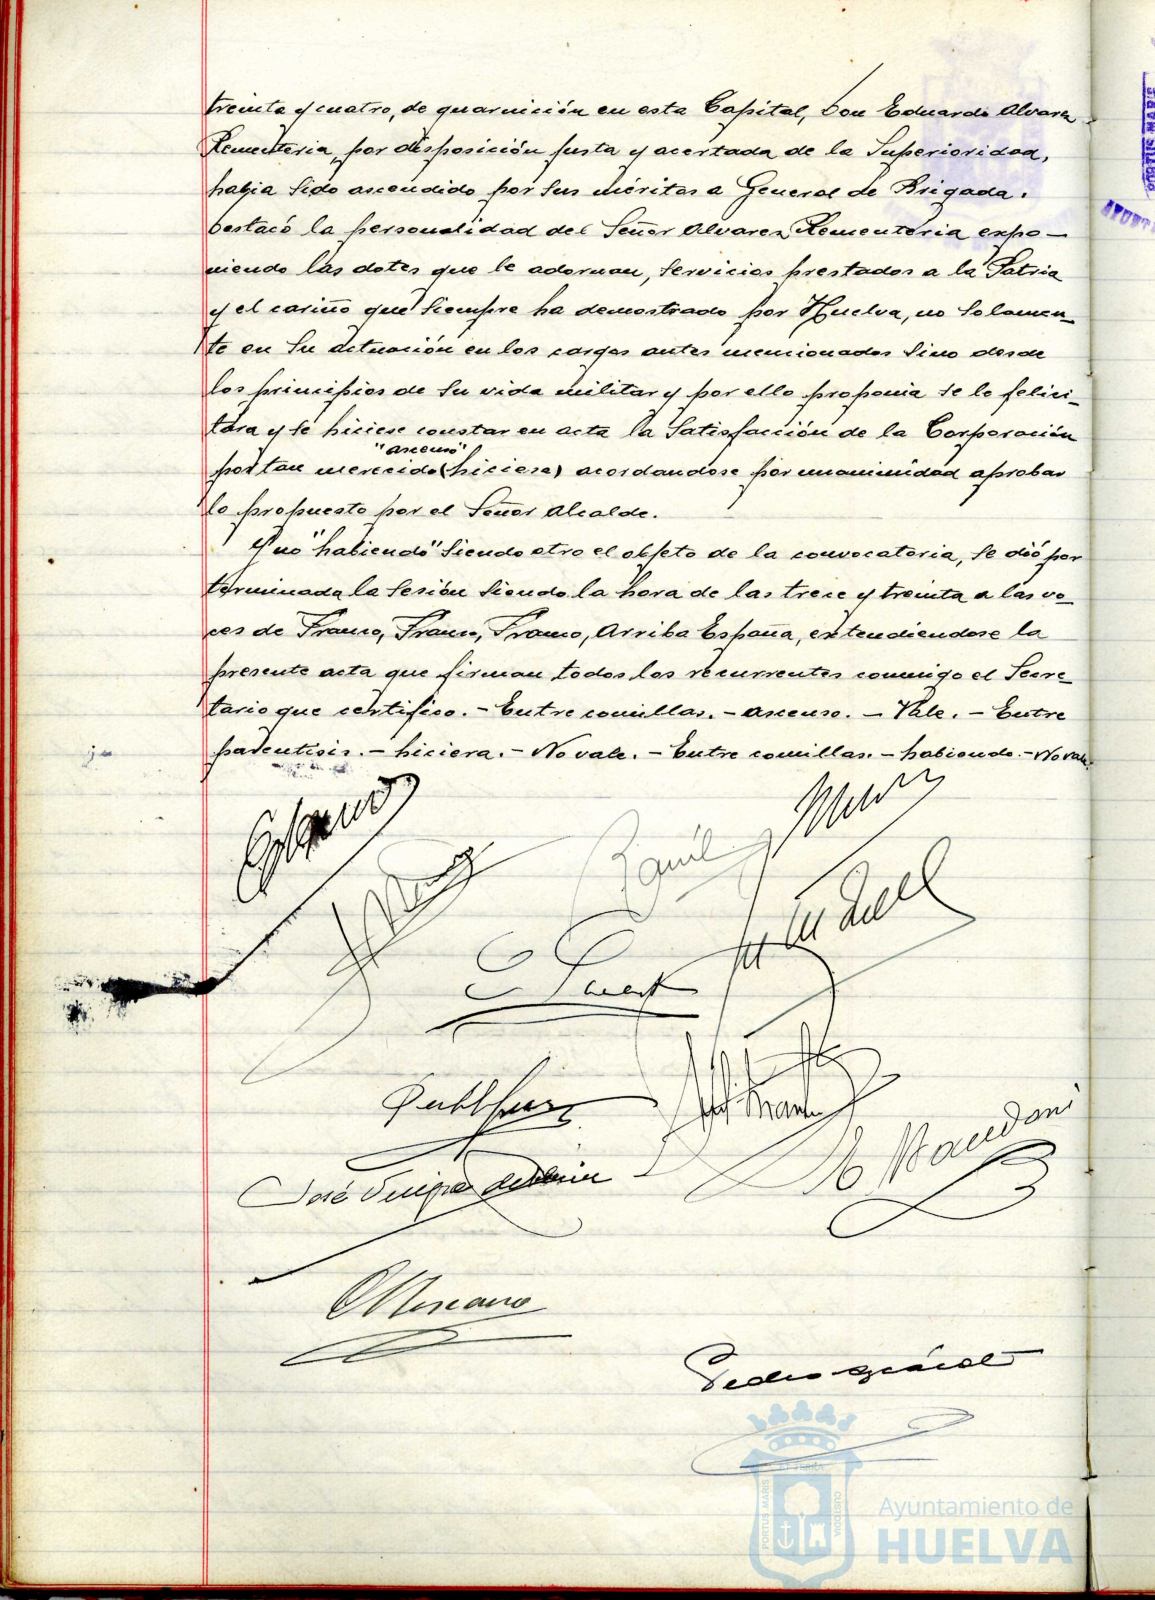 treinta y cuatro, de guarnición en esta Capital, Don Eduardo Alvarez
Rementeria, por disposición justa y acertada de la Superioridad,
habia sido ascendido por sus méritos a General de Brigada.
Destacó la personalidad del Señor Alvarez Rementeria expo-
niendo las dotes que le adornan, servicios prestados a la Patria
y el cariño que siempre ha demostrado por Huelva, no solamen-
te en su actuación en los cargos antes mencionados sino desde
los principios de su vida militar y por ello proponia se le felici-
tara y se hiciese constar en acta la satisfacción de la Corporación
"ascenso"
por tan merecido (hiciese) acordandose por unanimidad aprobar
lo propuesto por el Señor Alcalde.
Y no "habiendo" siendo otro el objeto de la convocatoria, se dió por
terminada la sesión siendo la hora de las trece y treinta a las vo-
ces de Franco, Franco, Franco, Arriba España, extendiendose la
presente acta que firman todos los recurrentes conmigo el Secre-
tario que certifico. - Entre comillas. - ascenso. - Vale. - Entre
parentisis. - hiciera. - No vale. - Entre comillas. - habiendo. - No vale.
José
Pedro
PORTUS MARIS
CUSTODIA
Ayuntamiento de
HUELVA